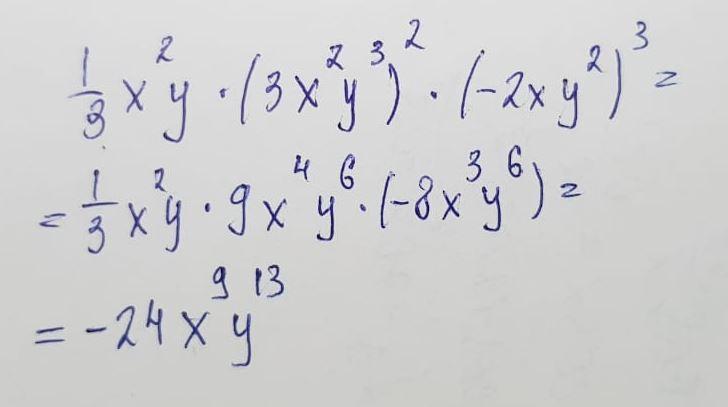 1/3 x²y · (3x²y³)² · (-2xy²)³ =
= 1/3 x²y · 9x⁴y⁶ · (-8x³y⁶) =
= -24x⁹y¹³